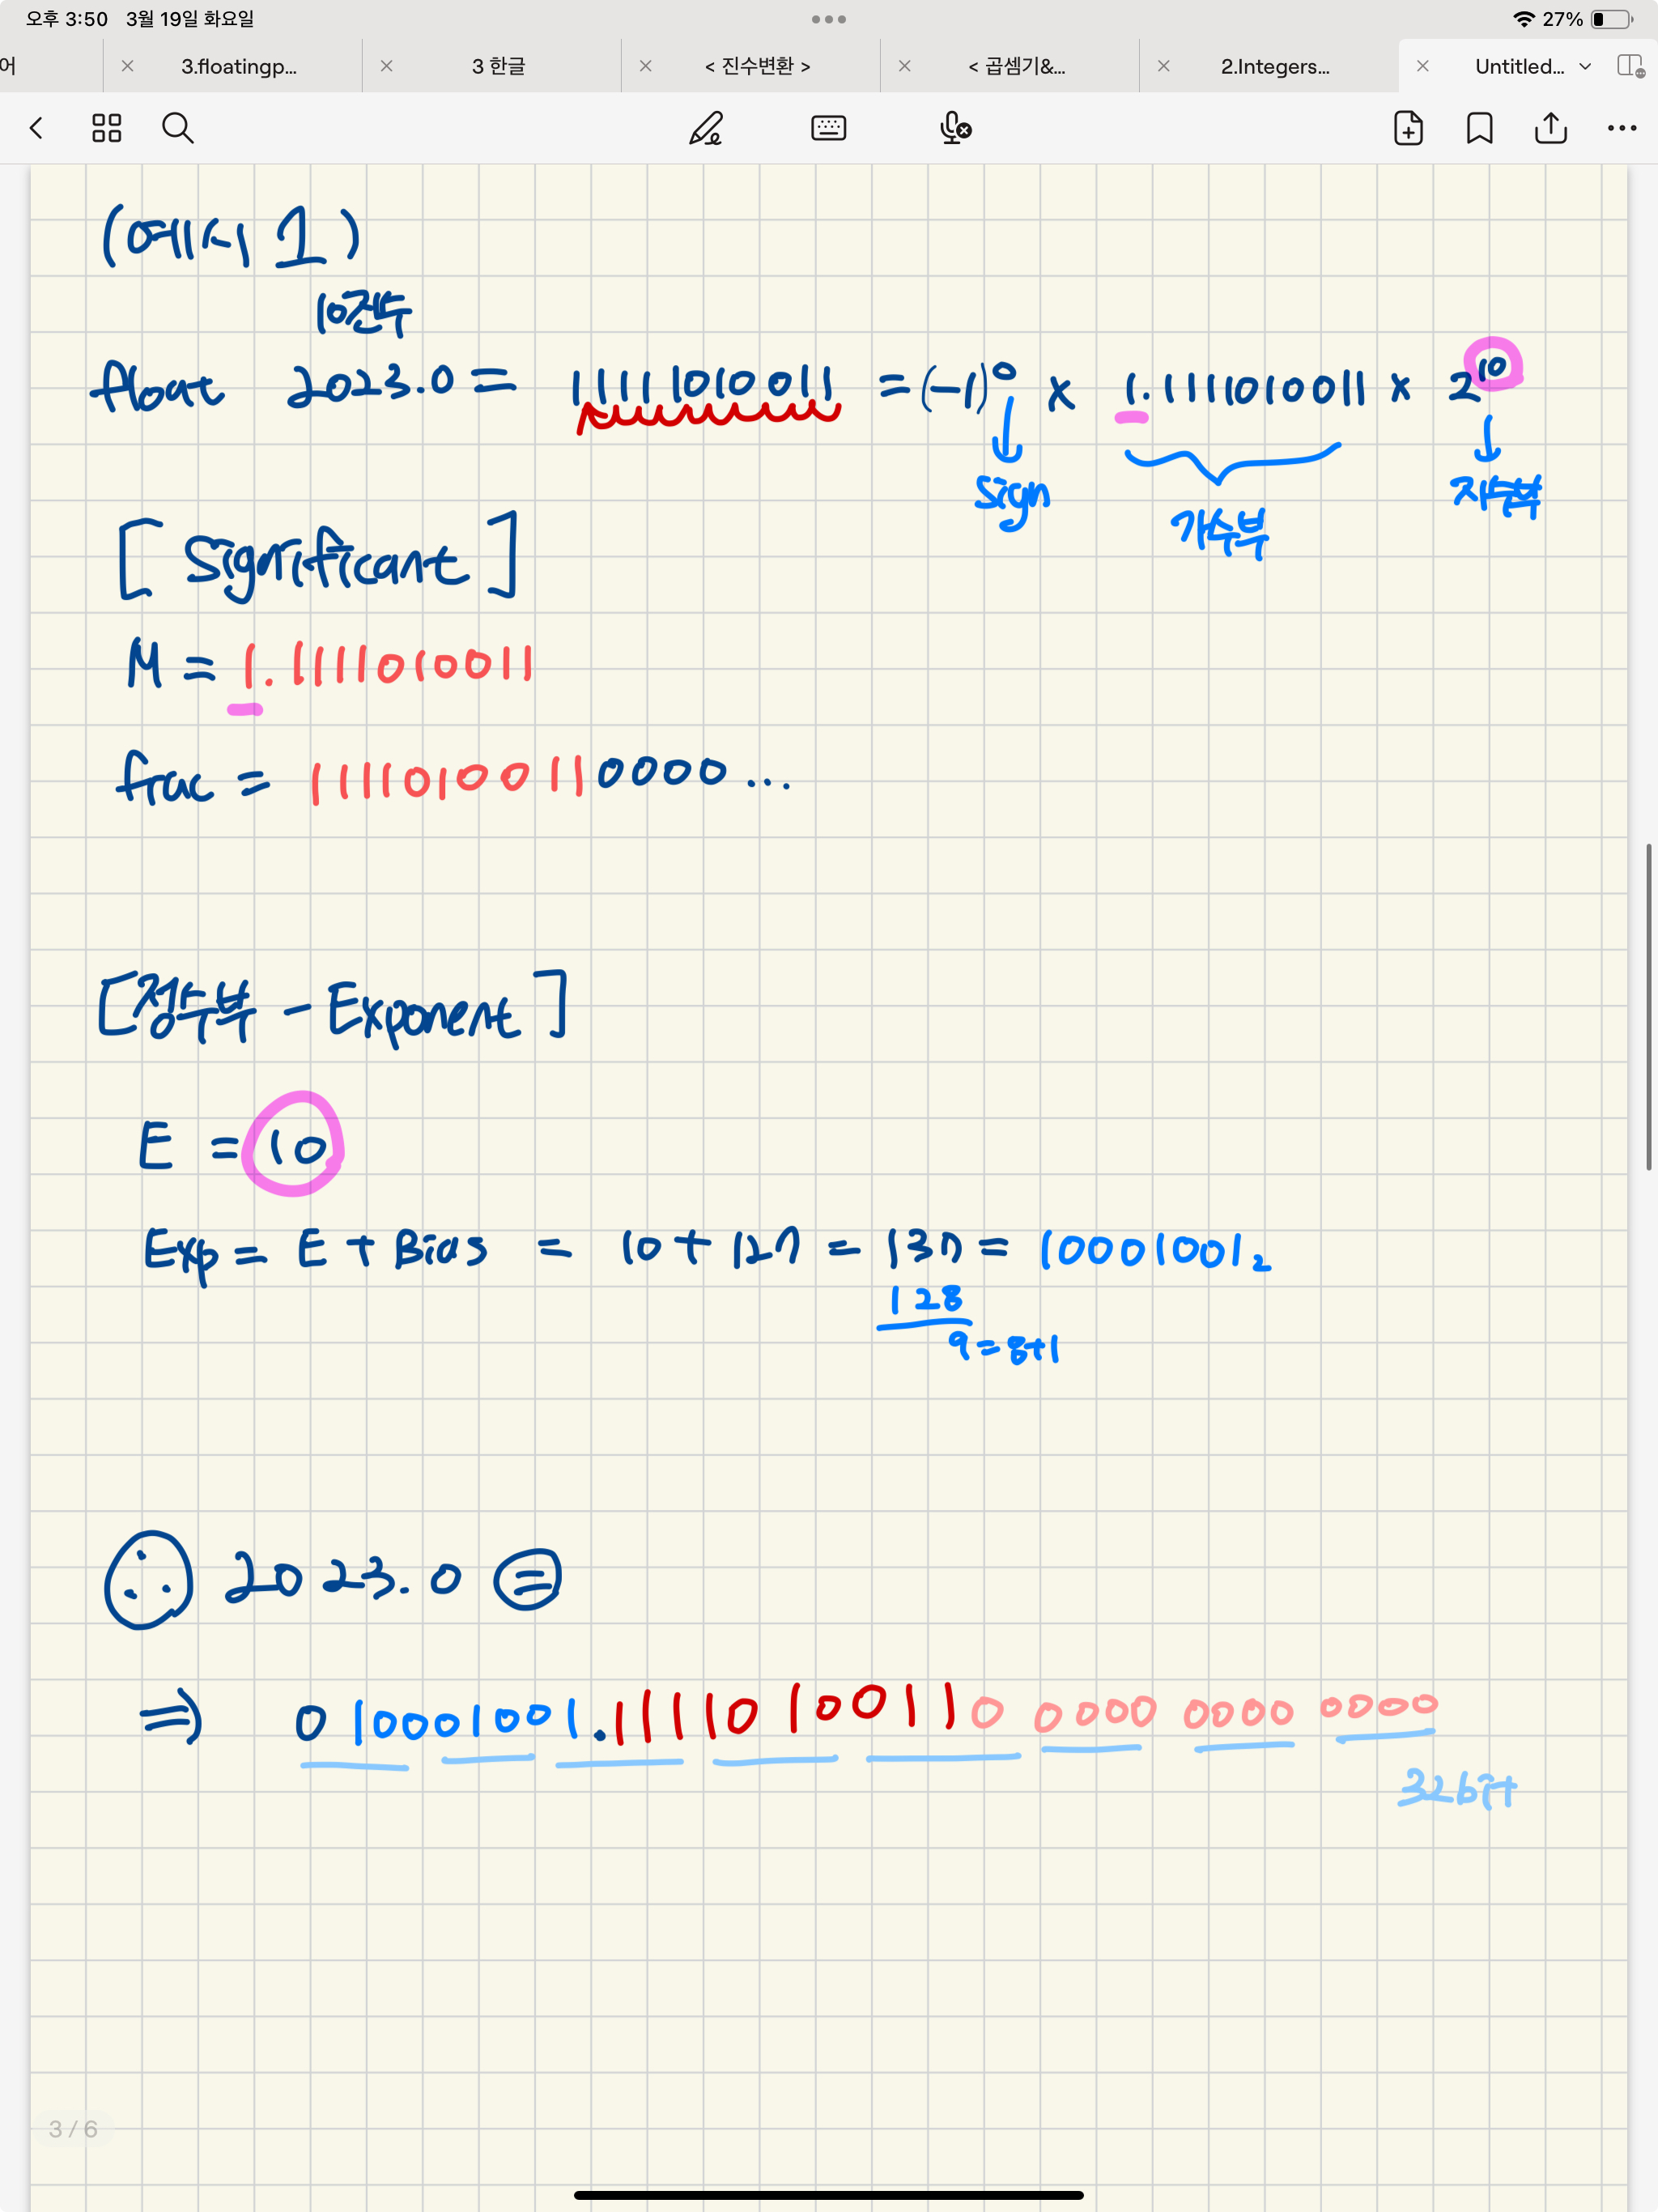 오후 3:50 3월 19일 화요일 27%
어 3.floatingp... 3 한글 < 진수변환 > < 곱셈기&... 2.Integers... Untitled...
(예시 1)
10진수
float 2023.0 = 11111010011 = (-1)⁰ x 1.1111010011 x 2¹⁰
sign 가수부 지수부
[Significant]
M = 1.1111010011
frac = 11110100110000...
[정수부 - Exponent]
E = 10
Exp = E + Bias = 10 + 127 = 137 = 10001001₂
128
9 = 8+1
∴ 2023.0 =
⇒ 0 10001001.11110100110 0000 0000 0000
32bit
3 / 6